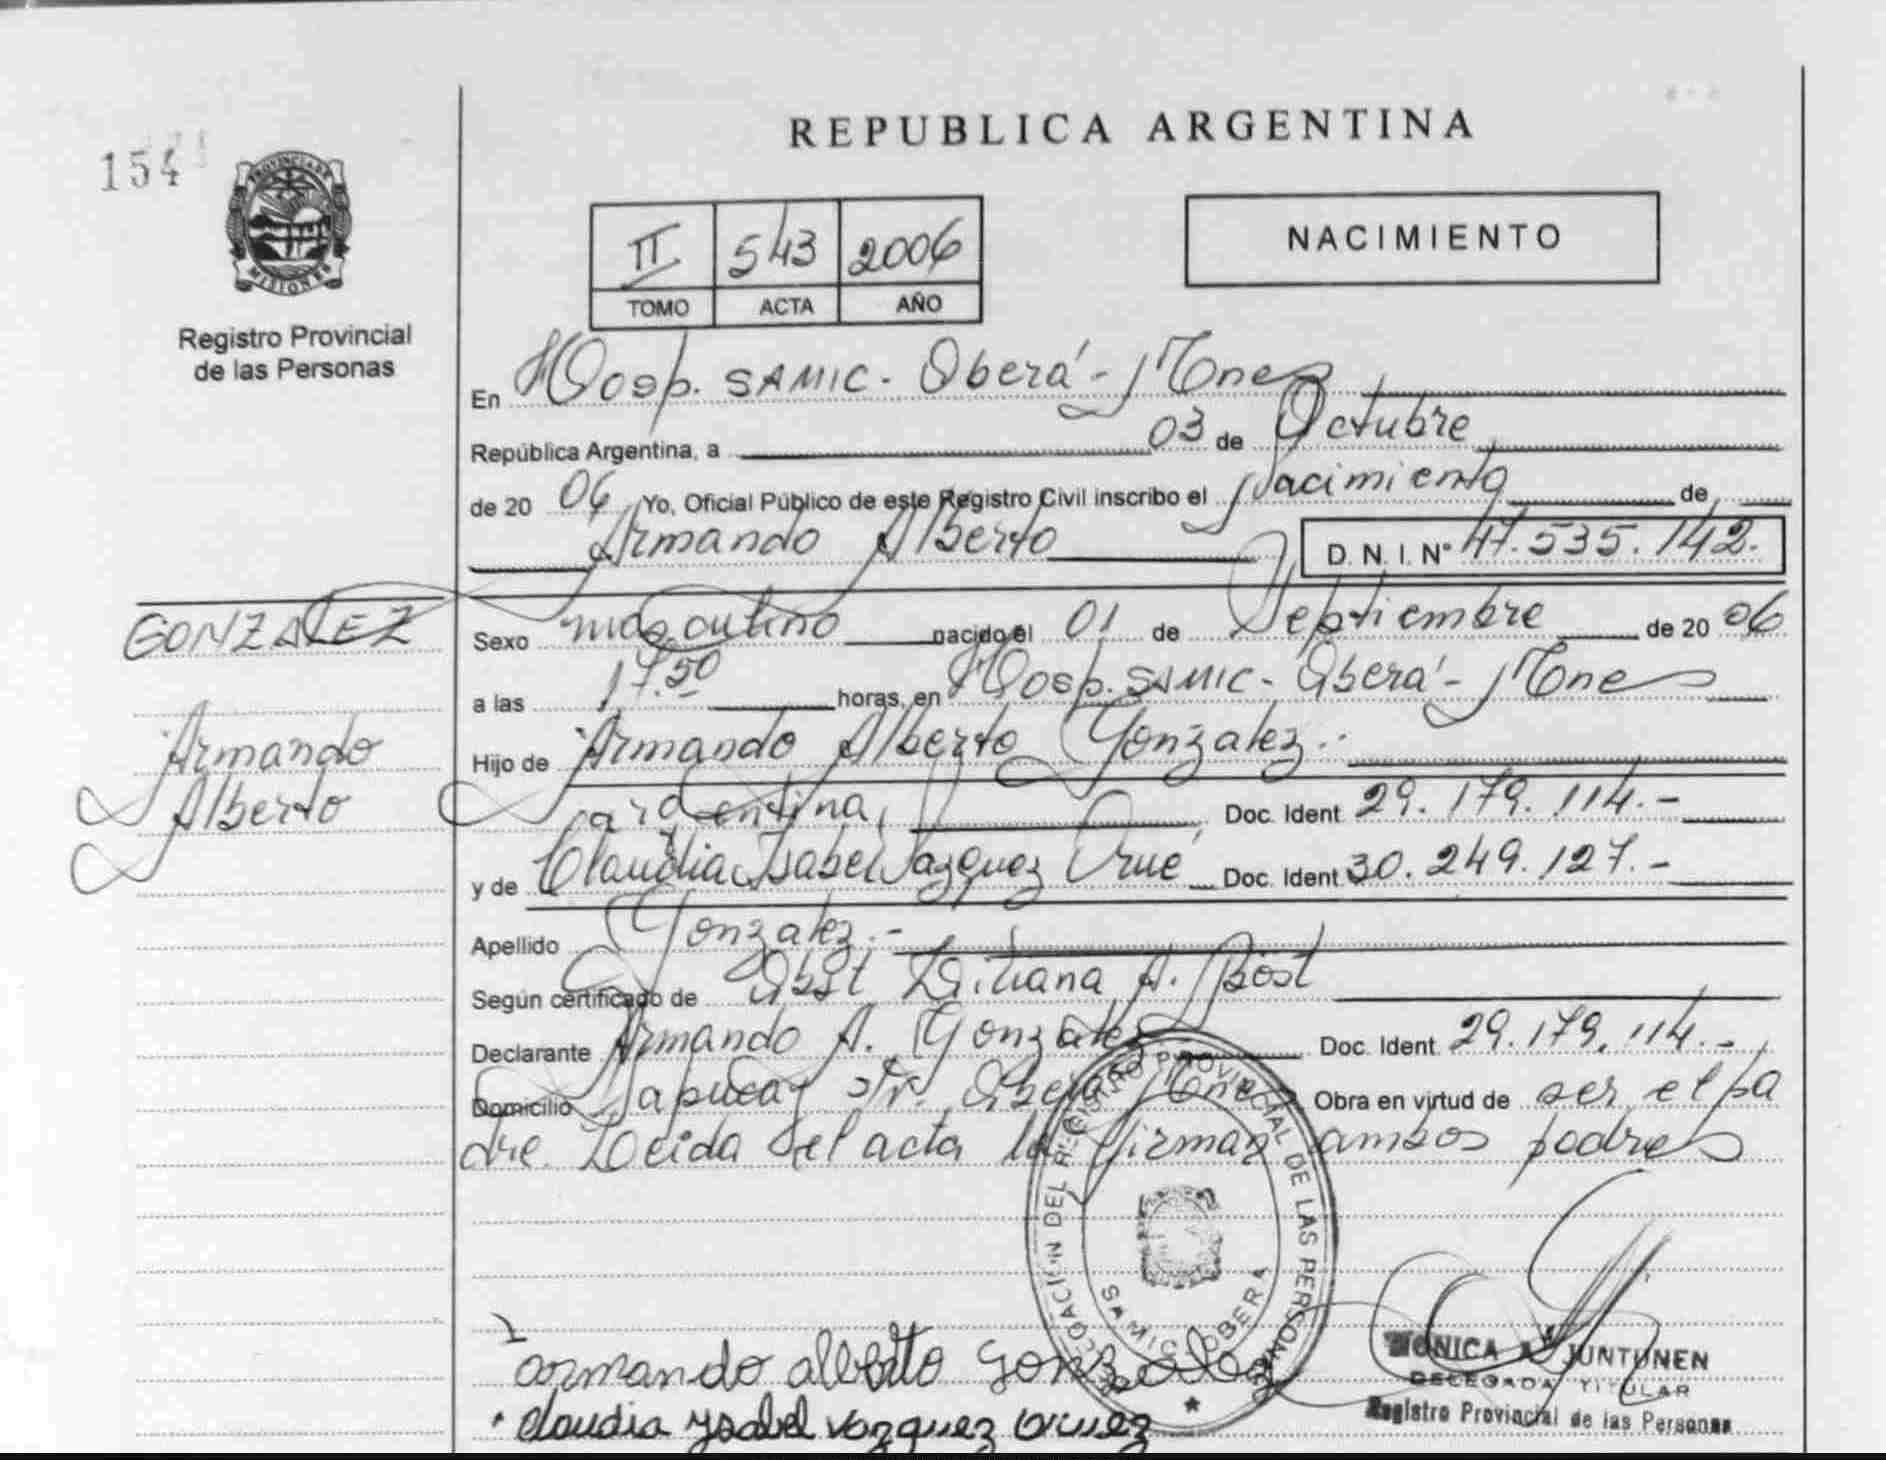 REPUBLICA ARGENTINA
154
PROVINCIA DE
MISIONES
Registro Provincial
de las Personas
II 543 2006
TOMO ACTA AÑO
NACIMIENTO
En Hosp. SAMIC - Oberá - Mnes
República Argentina, a 03 de Octubre
de 20 06 Yo, Oficial Público de este Registro Civil inscribo el Nacimiento de
Armando Alberto D. N. I. Nº 47.535.142.
GONZALEZ
Armando
Alberto
Sexo masculino nacido el 01 de Septiembre de 20 06
a las 17.50 horas, en Hosp. SAMIC - Oberá - Mnes
Hijo de Armando Alberto Gonzalez.-
argentina, Doc. Ident 29.179.114.-
y de Claudia Isabel Vazquez Orué Doc. Ident 30.249.127.-
Apellido Gonzalez.-
Según certificado de Obst Liliana A. Bost
Declarante Armando A. Gonzalez Doc. Ident. 29.179.114.-
Domicilio Yapeyu Oberá Mnes Obra en virtud de ser el pa
dre. Leida el acta la firman ambos padres
DELEGACION DEL REGISTRO PROVINCIAL DE LAS PERSONAS
SAMIC - OBERA
armando alberto gonzalez
claudia ysabel vazquez
MONICA JUNTUNEN
DELEGADA TITULAR
Registro Provincial de las Personas